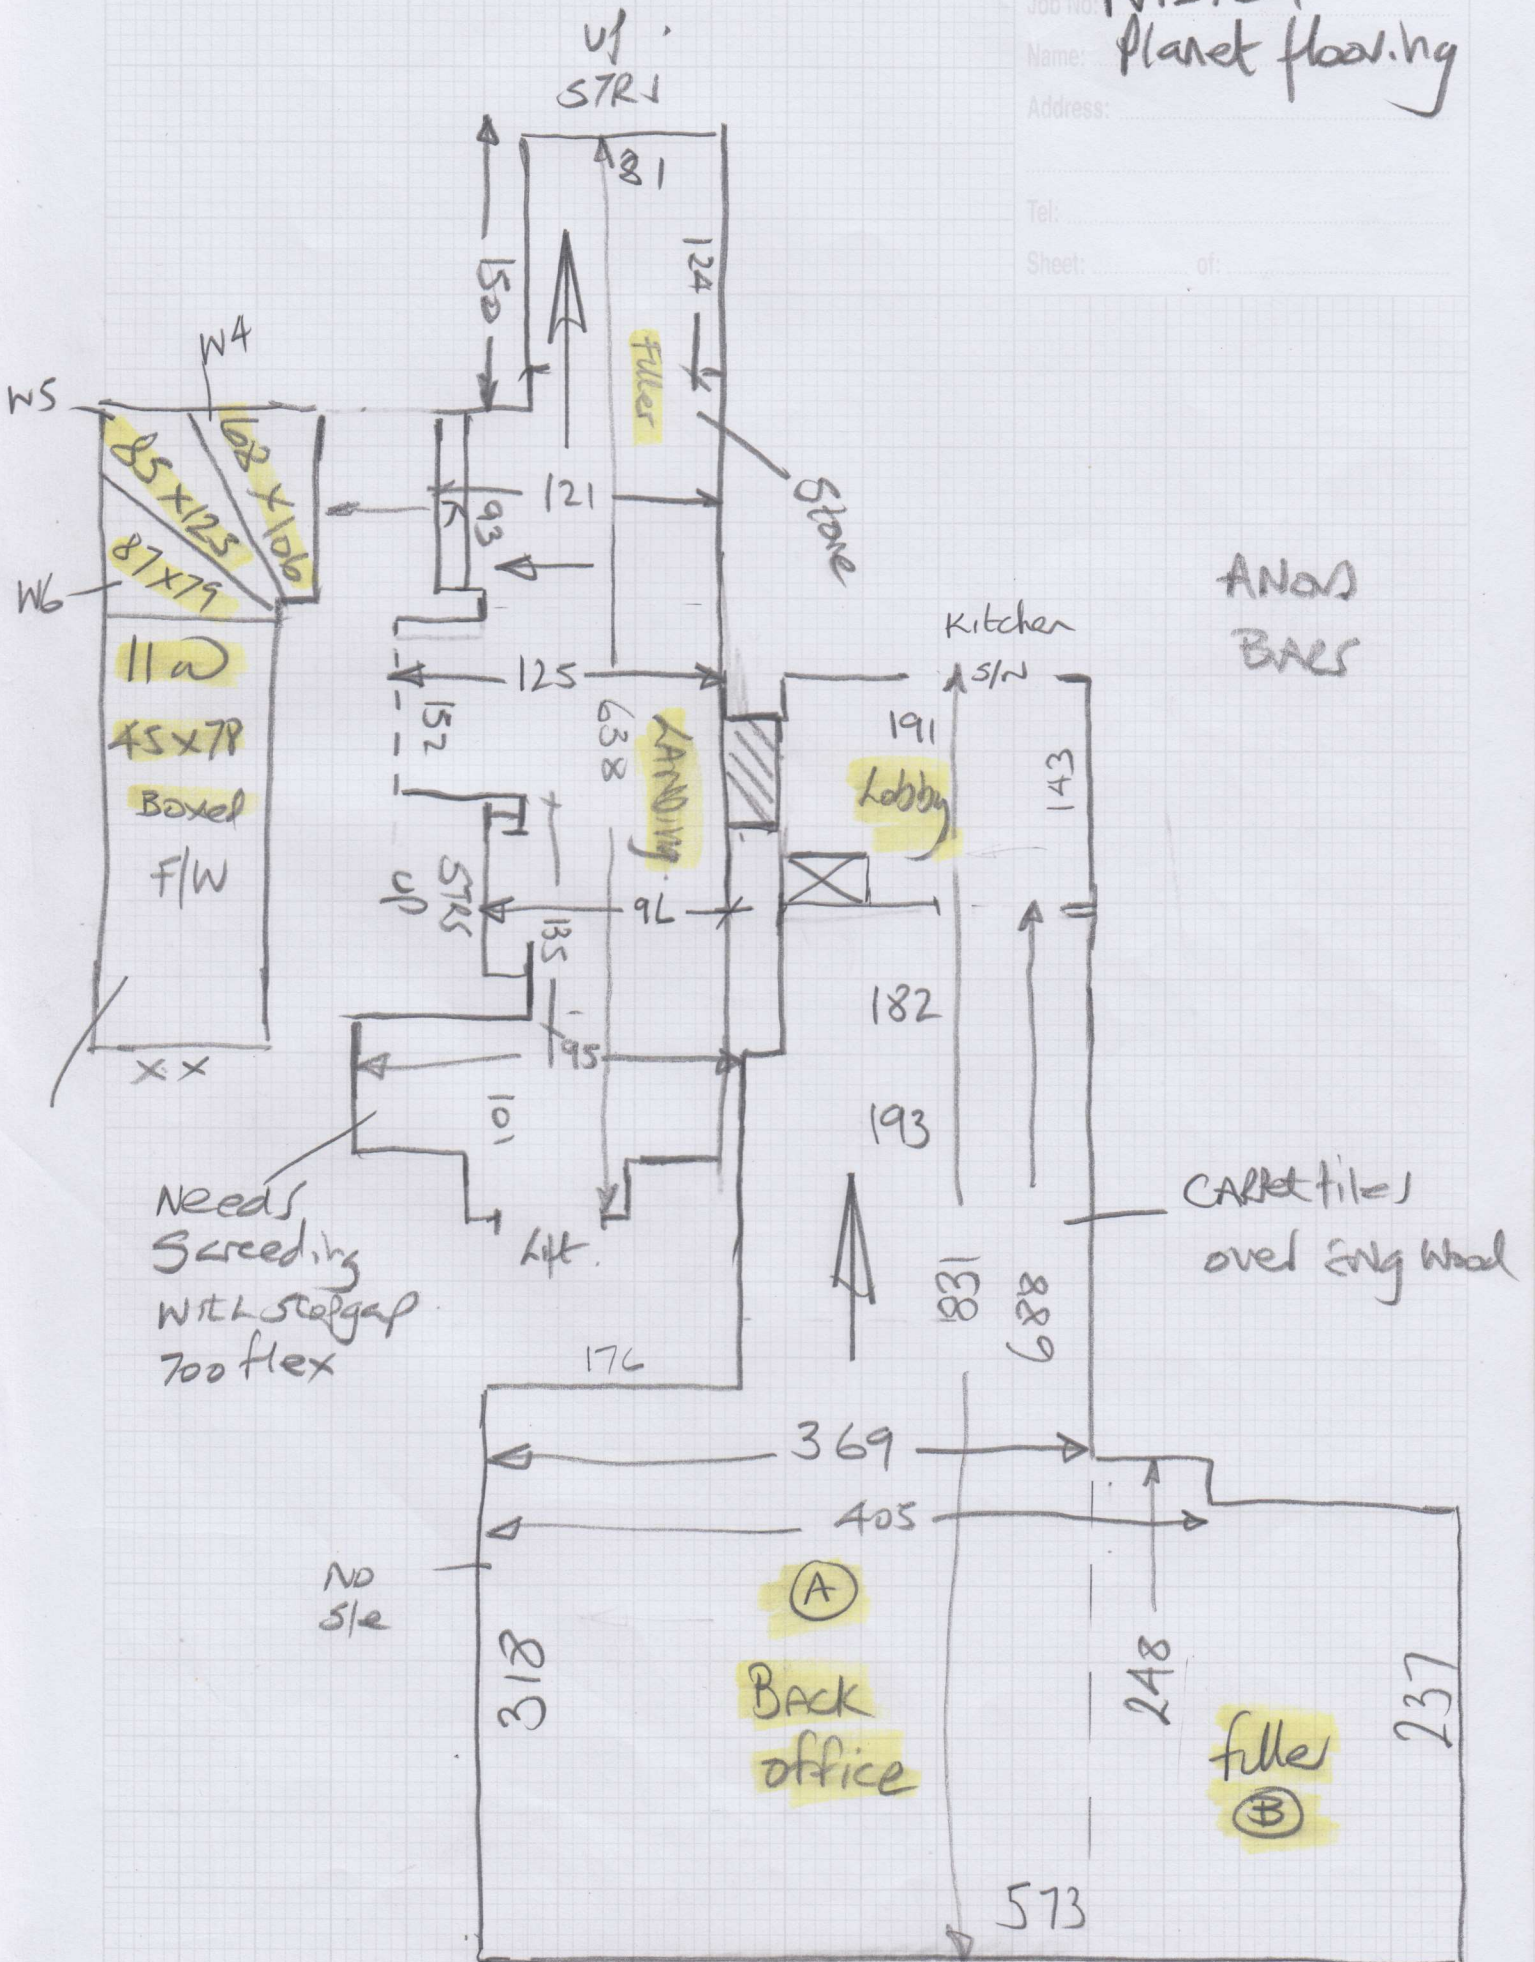 Job No:
Name: Planet flooring
Address:
Tel:
Sheet: of:
UP
STRS
81
150
124
Filler
W4
W5
168 x 106
85 x 123
87 x 79
W6
11 W
45 x 78
Boxed
F/W
X X
121
K
93
Stone
125
152
638
LANDing
Kitchen
S/N
191
Lobby
143
ANOD
BARS
STRS
UP
96
135
182
195
101
193
Needs
Screeding
With stopgap
700 flex
Lift
CARPet tiles
over Eng Wood
831
689
176
369
405
No
S/e
318
A
BACK
office
248
237
filler
B
573